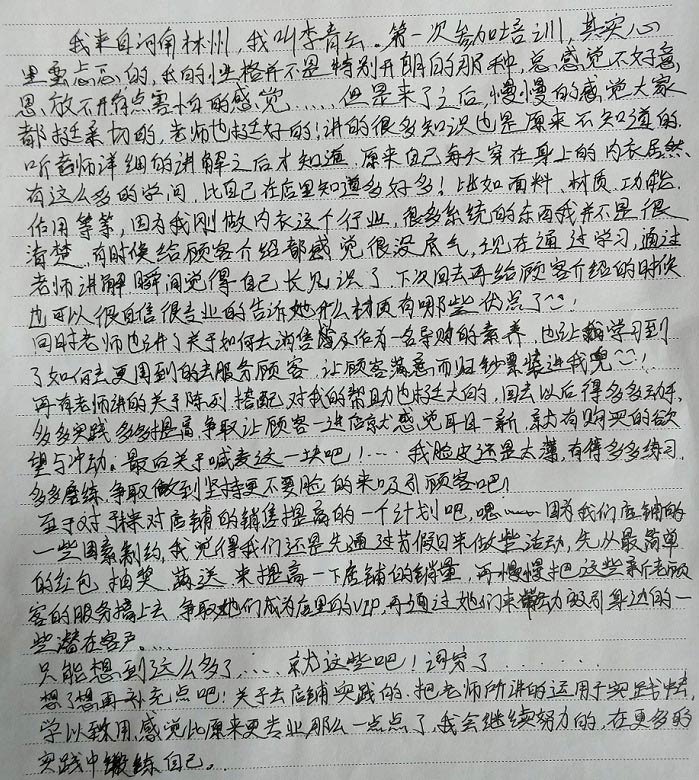 我来自河南林州，我叫李青云。第一次参加培训，其实心
里蛮忐忑的，我的性格并不是特别开朗的那种，总感觉不好意
思，放不开有点害怕的感觉……但是来了之后，慢慢的感觉大家
都挺亲切的，老师也挺好的！讲的很多知识也是原来不知道的
听老师详细的讲解之后才知道，原来自己每天穿在身上的内衣居然
有这么多的学问，比自己在店里知道多好多！比如面料、材质、功能、
作用等等，因为我刚做内衣这个行业，很多系统的东西我并不是很
清楚，有时候给顾客介绍都感觉很没底气，现在通过学习，通过
老师讲解瞬间觉得自己长见识了，下次回去再给顾客介绍的时候
也可以很自信很专业的告诉她什么材质有哪些优点了！
同时老师也讲了关于如何去销售及作为一名导购的素养，也让我学习到
了如何去更周到的去服务顾客，让顾客满意而归钞票装进我兜！
再有老师讲的关于陈列搭配对我的帮助也挺大的，回去以后得多多动手，
多多实践，多多提高，争取让顾客一进店就感觉耳目一新，就有购买的欲
望与冲动。最后关于喊麦这一块吧！……我脸皮还是太薄，有待多多练习，
多多磨练，争取做到坚持更不要脸的来吸引顾客吧！
至于对未来对店铺的销售提高的一个计划吧，嗯……因为我们店铺的
一些因素制约，我觉得我们还是先通过节假日来做些活动，先从最简单
的红包、抽奖、满送、来提高一下店铺的销量，再慢慢把这些新老顾
客的服务搞上去，争取她们成为店里的VIP，再通过她们来带动吸引身边的一
些潜在客户。……
只能想到这么多了……就这些吧！词穷了……
想了想再补充点吧！关于去店铺实践的，把老师所讲的运用于实践中去，
学以致用，感觉比原来更专业那么一点点了，我会继续努力的，在更多的
实践中锻练自己。